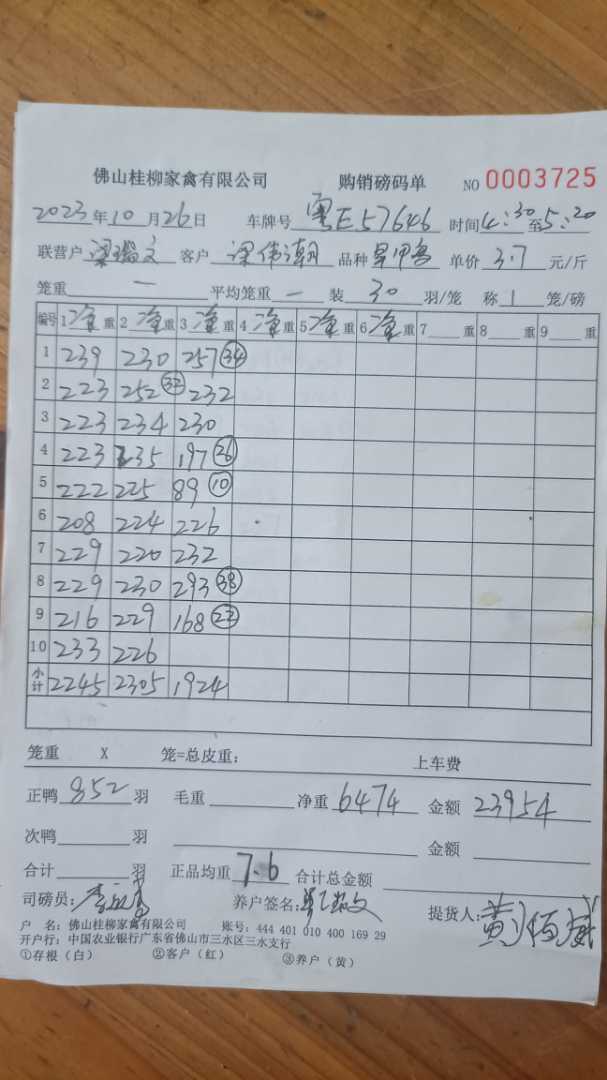 佛山桂柳家禽有限公司 购销磅码单 NO 0003725
2023年10月26日 车牌号 粤E57646 时间 4:30至5:20
联营户 梁瑞文 客户 梁伟潮 品种 单价 3.7 元/斤
笼重 — 平均笼重 — 装 30 羽/笼 称 1 笼/磅
编号 1净重 2净重 3净重 4净重 5净重 6净重 7 重 8 重 9 重
1 239 230 257 34
2 223 252 32 232
3 223 234 230
4 223 235 197 26
5 222 225 89 10
6 208 224 226
7 229 220 232
8 229 230 293 38
9 216 229 168 22
10 233 226
小计 2245 2305 1924
笼重 X 笼=总皮重: 上车费
正鸭 852 羽 毛重 净重 6474 金额 23954
次鸭 羽 金额
合计 羽 正品均重 7.6 合计总金额
司磅员: 养户签名: 提货人:
户 名: 佛山桂柳家禽有限公司 账号: 444 401 010 400 169 29
开户行: 中国农业银行广东省佛山市三水区三水支行
①存根（白） ②客户（红） ③养户（黄）